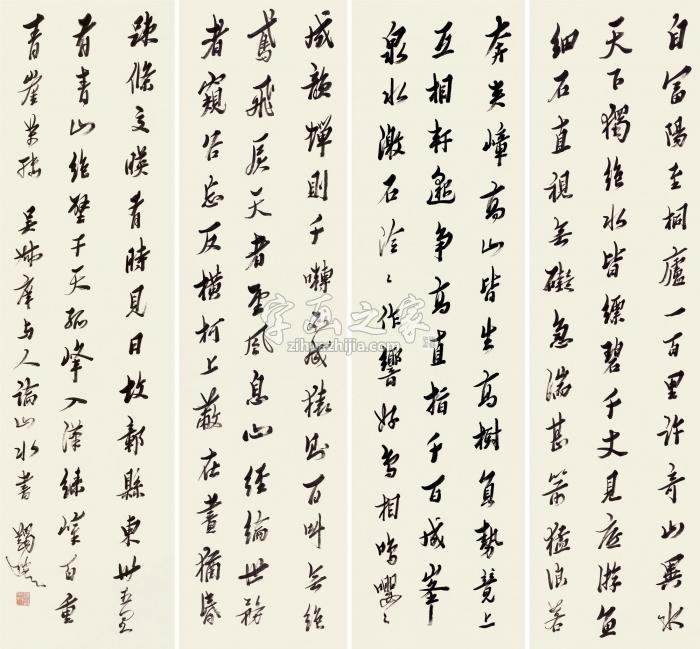 自富陽至桐廬一百里許奇山異水
天下獨絶水皆縹碧千丈見底游魚
細石直視無礙急湍甚箭猛浪若
奔夹嶂高山皆生高樹負勢競上
互相軒邈争高直指千百成峯
泉水激石泠〻作響好鳥相鳴嚶〻
成韻蟬則千囀不成猿則百叫無絶
鳶飛戾天者望風息心經綸世務
者窺谷忘反横柯上蔽在晝猶昏
疎條交暎有時見日故鄣縣東卅五里
有青山絶壁干天孤峰入漢緑嶂百重
青崖萬轉 吴叔庠与人論山水書
字画之家
zihuazhijia.com